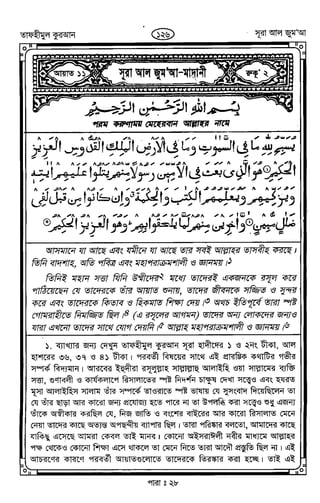 তাফহীমুল কুরআন ১২৬ সূরা আল জুম'আ
আয়াত ১১ সূরা আল জুম'আ-মাদানী রুকু' ২
بِسْمِ اللهِ الرَّحْمٰنِ الرَّحِيْمِ
পরম করুণাময় মেহেরবান আল্লাহর নামে
يُسَبِّحُ لِلّٰهِ مَا فِي السَّمٰوٰتِ وَمَا فِي الْاَرْضِ الْمَلِكِ الْقُدُّوْسِ الْعَزِيْزِ
الْحَكِيْمِ ۝ هُوَ الَّذِيْ بَعَثَ فِي الْاُمِّيّٖنَ رَسُوْلًا مِّنْهُمْ يَتْلُوْا عَلَيْهِمْ اٰيٰتِهٖ
وَيُزَكِّيْهِمْ وَيُعَلِّمُهُمُ الْكِتٰبَ وَالْحِكْمَةَ وَاِنْ كَانُوْا مِنْ قَبْلُ لَفِيْ
ضَلٰلٍ مُّبِيْنٍ ۝ وَّاٰخَرِيْنَ مِنْهُمْ لَمَّا يَلْحَقُوْا بِهِمْ وَهُوَ الْعَزِيْزُ الْحَكِيْمُ ۝
আসমানে যা আছে এবং যমীনে যা আছে তার সবই আল্লাহর তাসবীহ করছে।
তিনি বাদশাহ, অতি পবিত্র এবং মহাপরাক্রমশালী ও জ্ঞানময়।১
তিনিই মহান সত্তা যিনি উম্মীদের২ মধ্যে তাদেরই একজনকে রসূল করে
পাঠিয়েছেন যে তাদেরকে তাঁর আয়াত শুনায়, তাদের জীবনকে সজ্জিত ও সুন্দর
করে এবং তাদেরকে কিতাব ও হিকমাত শিক্ষা দেয়।৩ অথচ ইতিপূর্বে তারা স্পষ্ট
গোমরাহীতে নিমজ্জিত ছিল।৪ (এ রসূলের আগমন) তাদের অন্য লোকদের জন্যও
যারা এখনো তাদের সাথে যোগ দেয়নি।৫ আল্লাহ মহাপরাক্রমশালী ও জ্ঞানময়।৬
১. ব্যাখ্যার জন্য দেখুন তাফহীমুল কুরআন সূরা হাদীদের ১ ও ২নং টীকা, আল
হাশরের ৩৬, ৩৭ ও ৪১ টীকা। পরবর্তী বিষয়ের সাথে এই প্রারম্ভিক কথাটির গভীর
সম্পর্ক বিদ্যমান। আরবের ইহুদীরা রসূলুল্লাহ সাল্লাল্লাহু আলাইহি ওয়া সাল্লামের ব্যক্তি
সত্তা, গুণাবলী ও কার্যকলাপে রিসালাতের স্পষ্ট নিদর্শন চাক্ষুষ দেখা সত্ত্বেও এবং হযরত
মূসা আলাইহিস সালাম তাঁর সম্পর্কে তাওরাতে স্পষ্ট ভাষায় যে সুসংবাদ দিয়েছিলেন তা
যে তাঁর ছাড়া আর কারো জন্য প্রযোজ্য হতে পারে না তা উপলব্ধি করা সত্ত্বেও শুধু এজন্য
তাঁকে অস্বীকার করছিল যে, নিজ জাতি ও বংশের বাইরের আর কারো রিসালাত মেনে
নেয়া তাদের কাছে অত্যন্ত অপছন্দনীয় ব্যাপার ছিল। তারা পরিষ্কার বলতো, আমাদের কাছে
যাকিছু এসেছে আমরা কেবল তাই মানব। কোনো অইসরাঈলী নবীর মাধ্যমে আল্লাহর
পক্ষ থেকেও কোনো শিক্ষা এসে থাকলে তা মেনে নিতে তারা আদৌ প্রস্তুত ছিল না। এই
আচরণের কারণে পরবর্তী আয়াতগুলোতে তাদেরকে তিরস্কার করা হচ্ছে। তাই এই
পারা : ২৮